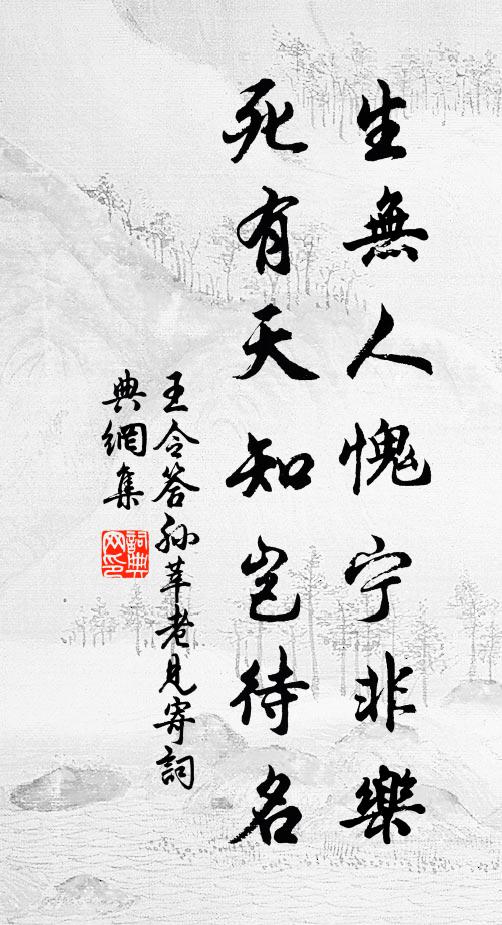 生無人愧宁非樂
死有天知岂待名
王令答孙莘老見寄詞
典網集
詞典
网印